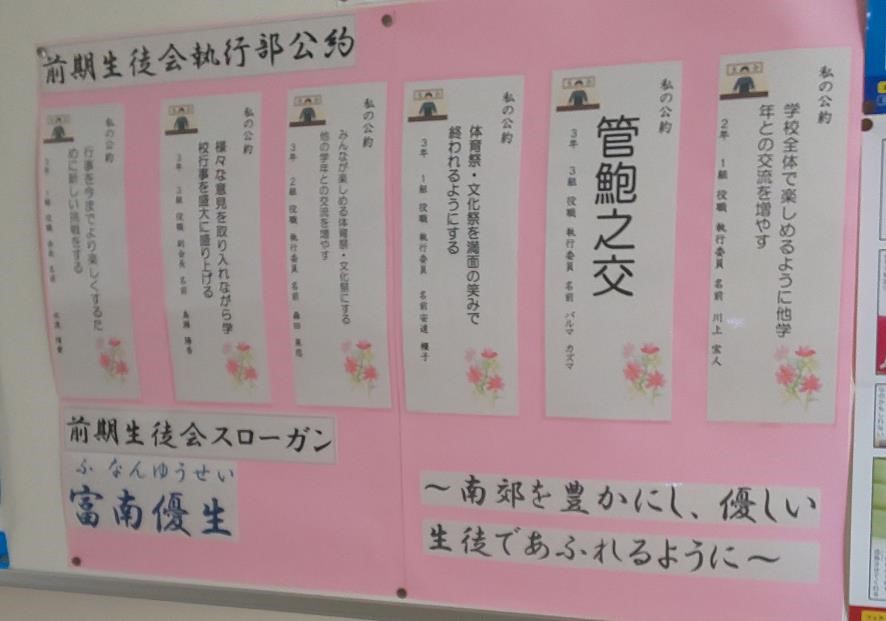 前期生徒会執行部公約
私の公約
学校全体で楽しめるように他学
年との交流を増やす
2年 1組 役職 執行委員 名前 川上 宏人
私の公約
管鮑之交
3年 3組 役職 執行委員 名前 バルマ カズマ
私の公約
体育祭・文化祭を満面の笑みで
終われるようにする
3年 1組 役職 執行委員 名前 安達 子
私の公約
みんなが楽しめる体育祭・文化祭にする
他の学年との交流を増やす
3年 2組 役職 執行委員 名前 森田
私の公約
様々な意見を取り入れながら学
校行事を盛大に盛り上げる
3年 3組 役職 副会長 名前
私の公約
行事を今までより楽しくするた
めに新しい挑戦をする
3年 1組 役職 会長 名前
前期生徒会スローガン
ふなんゆうせい
富南優生
～南郊を豊かにし、優しい
生徒であふれるように～